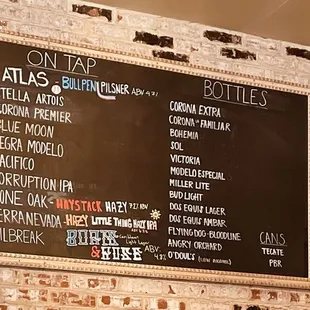 ON TAP
ATLAS - BULLPEN PILSNER ABV 4.7
TELLA ARTOIS
ORONA PREMIER
BLUE MOON
EGRA MODELO
PACIFICO
ORRUPTION IPA
ONE OAK - HAYSTACK HAZY 7.2% ABV
ERRANEVADA - HAZY LITTLE THING HAZY IPA
ILBREAK
BURN & HOSE
Light Lager
ABV:
BOTTLES
CORONA EXTRA
CORONA FAMILIAR
BOHEMIA
SOL
VICTORIA
MODELO ESPECIAL
MILLER LITE
BUD LIGHT
DOS EQUIS LAGER
DOS EQUIS AMBAR
FLYING DOG - BLOODLINE
ANGRY ORCHARD
O'DOUL'S
CANS
TECATE
PBR